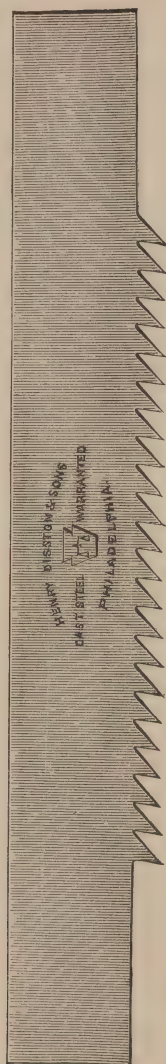 HENRY DISSTON & SONS
CAST STEEL WARRANTED
PHILADELPHIA.